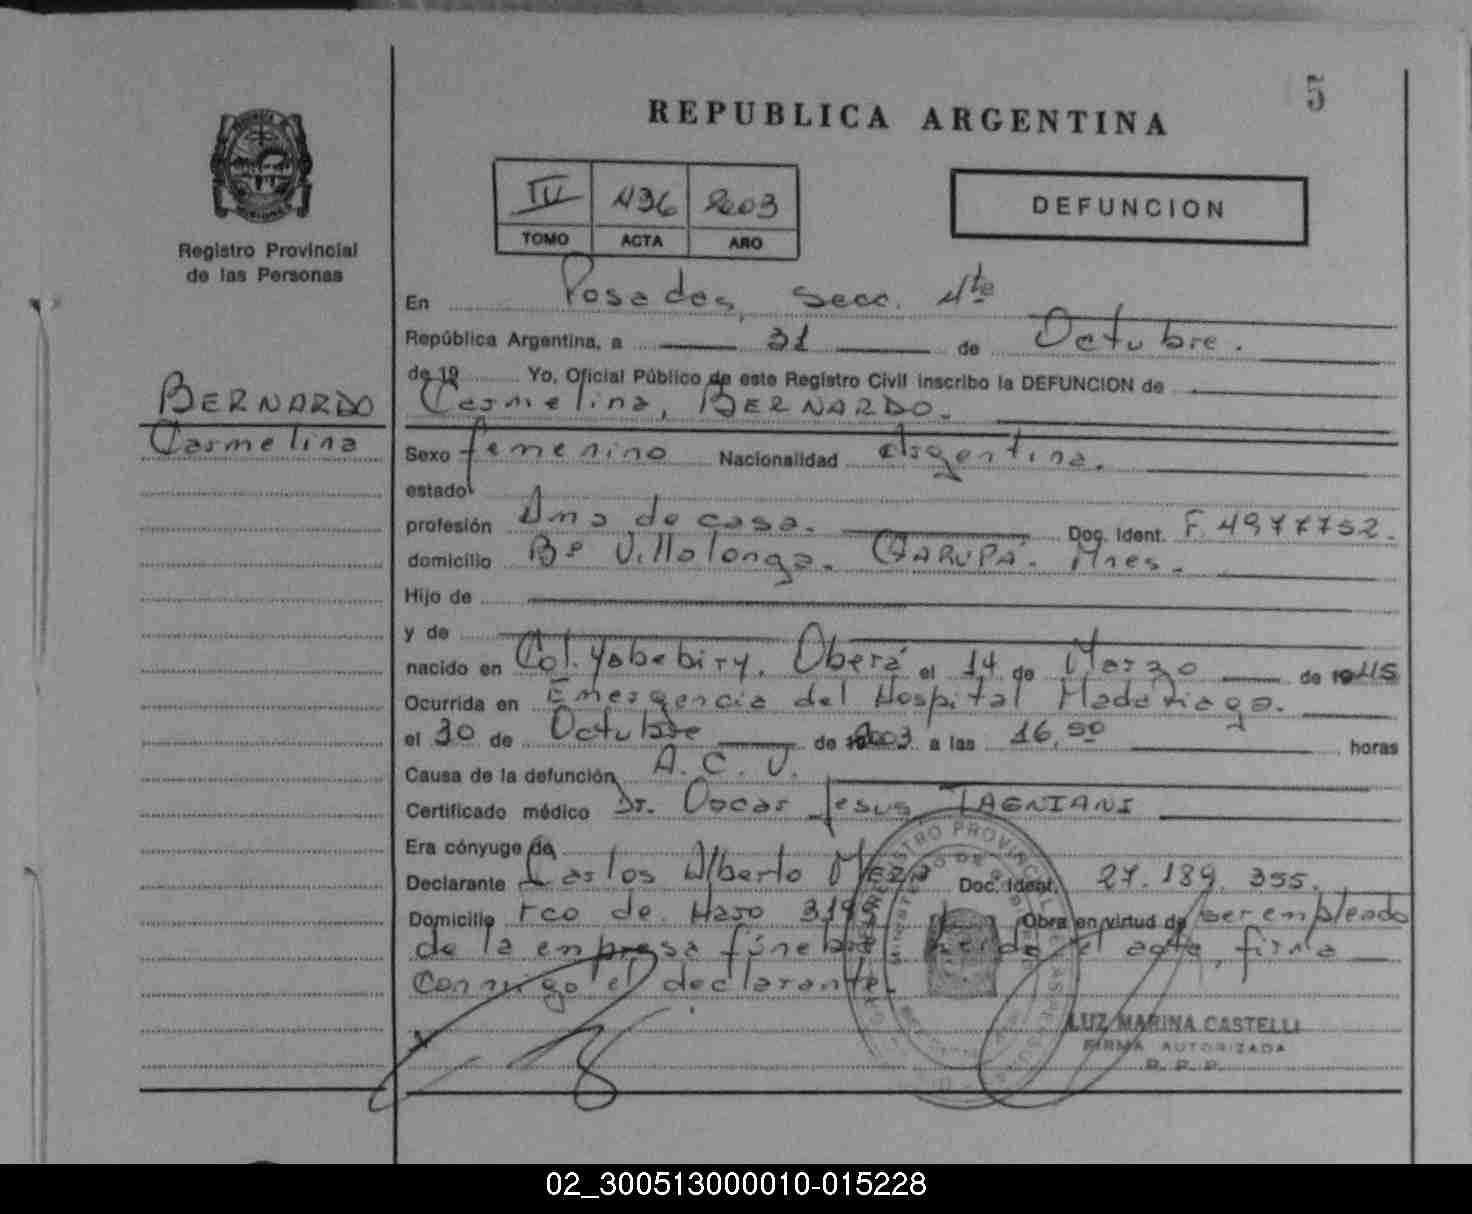 5
REPUBLICA ARGENTINA
IV 436 2003
TOMO ACTA AÑO
DEFUNCION
Registro Provincial
de las Personas
BERNARDO
Carmelina
En Posadas, Secc. 4ta
República Argentina, a 31 de Octubre.
de 19 Yo, Oficial Público de este Registro Civil inscribo la DEFUNCION de
Carmelina, BERNARDO.
Sexo femenino Nacionalidad Argentina.
estado
profesión Ama de casa. Doc. Ident. F. 4977752.
domicilio Bº Villalonga. GARUPÁ. Mnes.
Hijo de
y de
nacido en Col. Yabebiry. Oberá el 14 de Marzo de 1945
Ocurrida en Emergencia del Hospital Madariaga.
el 30 de Octubre de 2003 a las 16,50 horas
Causa de la defunción A.C.V.
Certificado médico Dr. Oscar Jesus TAGNIANI
Era cónyuge de
Declarante Carlos Alberto Meza Doc. Ident. 27.189.355.
Domicilio Fco de Haro Obra en virtud de ser empleado
de la empresa fúnebre el acta, firma
Conmigo el declarante.
LUZ MARINA CASTELLI
FIRMA AUTORIZADA
R. P. P.
02_300513000010-015228